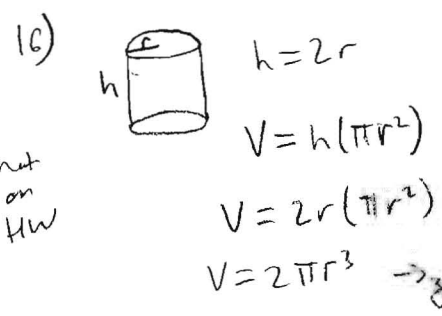 16)
r
h
h=2r
V=h(πr²)
not
on
HW
V=2r(πr²)
V=2πr³ →